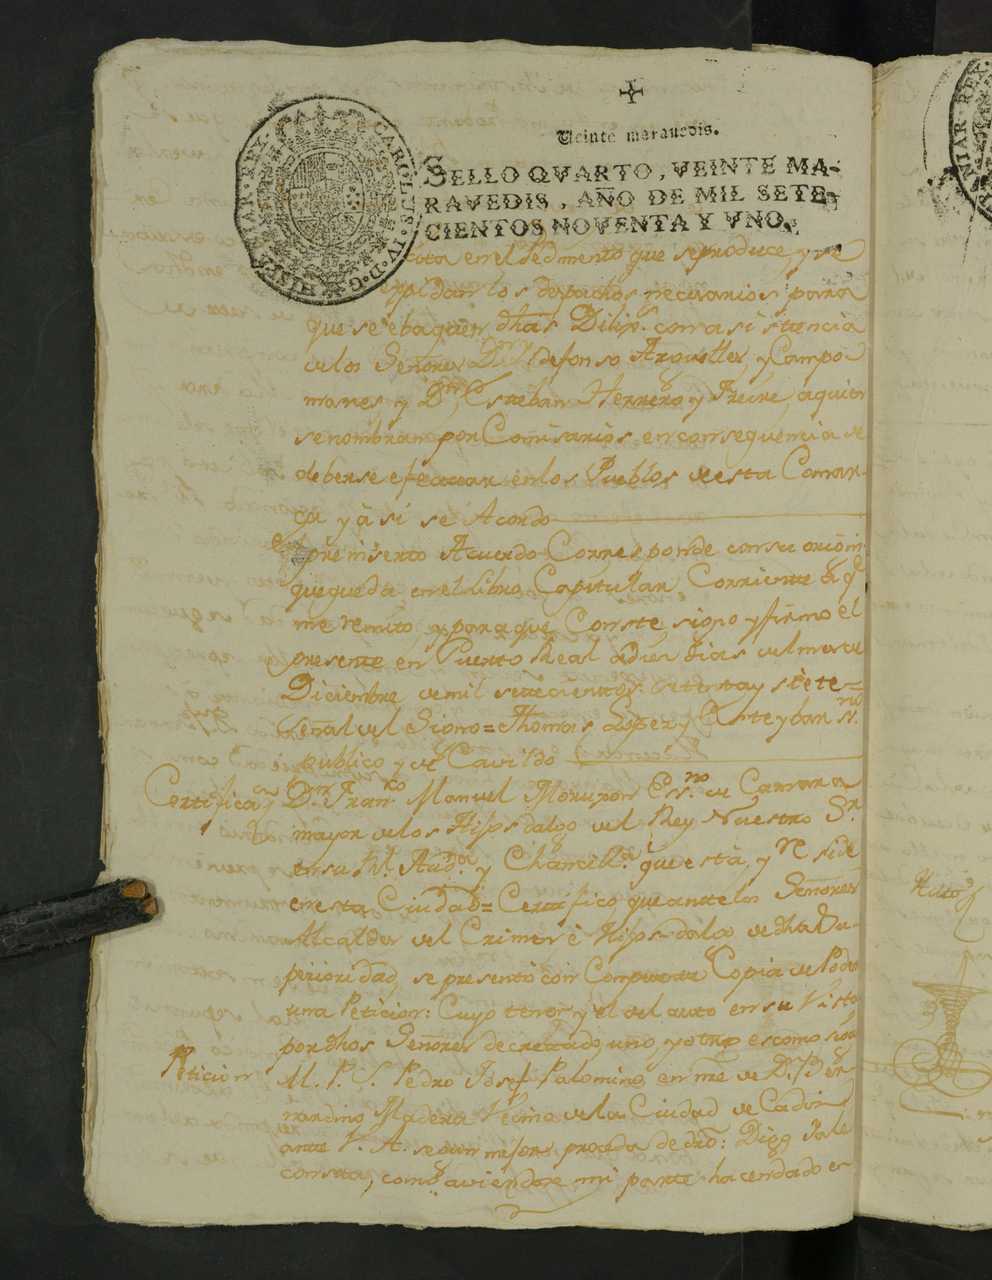 Veinte marauedis.
SELLO QVARTO, VEINTE MA-
RAVEDIS, AÑO DE MIL SETE-
CIENTOS NOVENTA Y VNO.
CAROLUS IV D G HISPANIAR REX
en el Pedimento que se produce, y se
expidan los despachos necesarios para
que se ebaquen dhas Dilig.s con asistencia
de los Señores Dn Ildefonso Arguelles, y Campo
manes, y Dn Esteban Herrero y Freire, a quien
se nombran por Comisarios en consequencia de
deberse efectuar en los Pueblos de esta Comar-
ca y asi se Acordo
El preinserto Acuerdo Corresponde con su origin.l
que queda en el Libro Capitular Corriente a q.e
me remito, y para que Conste signo y firmo el
presente en Puerto Real a diez dias del mes de
Diciembre de mil setecientos setenta y siete=
Señal del Signo= Thomas Lopez y Esteyban
publico y de Cavildo
Certificaz.on Dn Fran.co Manuel Es.no de Camara
mayor de los Hijos dalgo del Rey Nuestro S.r
en su Rl. Aud.a y Chancill.a que está, y reside
en esta Ciudad= Certifico que ante los Señores
Alcaldes del Crimen è Hijos-dalgo de dha Su-
perioridad, se presentó con Competente Copia de Poder
una Peticion: Cuyo tenor y el del auto en su Vista
por dhos Señores decretado, uno, y otro es como sigue
Peticion M. P. S. Pedro Josef Palomino, en nre de D. Ber-
nardino Madera Vecino de la Ciudad de Cadiz
ante V. A. segun mejor proceda de dro: Digo
como aviendose mi parte hacendado en